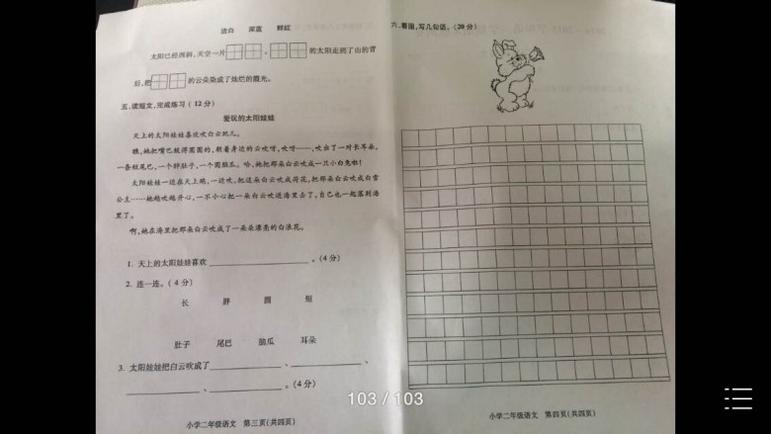 洁白 深蓝 鲜红
太阳已经西斜,天空一片 。 的太阳走到了山的背
后,把 的云朵染成了灿烂的霞光。
五、读短文,完成练习(12分)
爱玩的太阳娃娃
天上的太阳娃娃喜欢吹白云玩儿。
瞧,她把嘴巴鼓得圆圆的,朝着身边的云吹呀,吹呀——,吹出了一对长耳朵,
一条短尾巴,一个胖肚子,一个圆脑瓜。哈,她把那朵白云吹成一只小白兔啦!
太阳娃娃一边在天上跑,一边吹,把这朵白云吹成荷花,把那朵白云吹成白雪
公主……她越吹越开心,一不小心把一朵白云吹进海里去了,自己也一起落到海
里了。
啊,她在海里把那朵白云吹成了一朵朵漂亮的白浪花。
1. 天上的太阳娃娃喜欢 。(4分)
2. 连一连。(4分)
长 胖 圆 短
肚子 尾巴 脑瓜 耳朵
3. 太阳娃娃把白云吹成了 、 、
、 。(4分)
小学二年级语文 第三页(共四页)
六、看图,写几句话。(20分)
小学二年级语文 第四页(共四页)
103 / 103